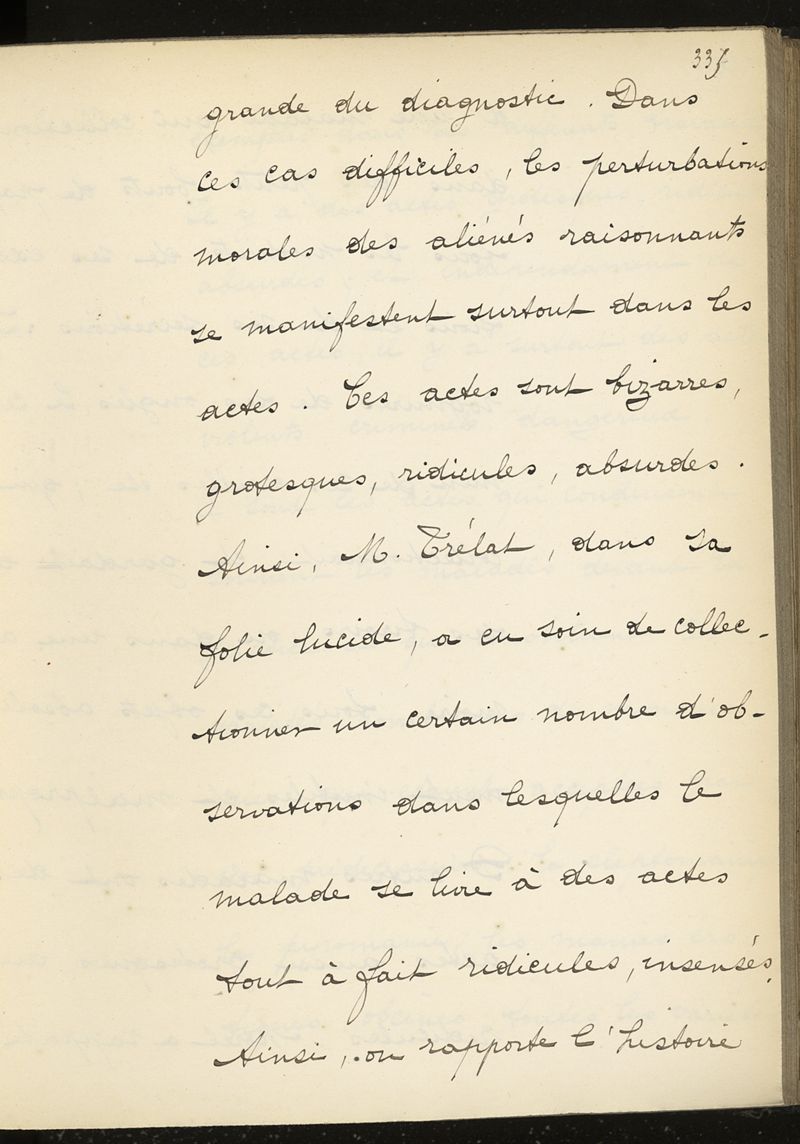 335
grande du diagnostic. Dans
ces cas difficiles, les perturbations
morales des aliénés raisonnants
se manifestent surtout dans les
actes. Ces actes sont bizarres,
grotesques, ridicules, absurdes.
Ainsi, M. Trélat, dans sa
folie lucide, a eu soin de collec-
tionner un certain nombre d'ob-
servations dans lesquelles le
malade se livre à des actes
tout à fait ridicules, insensés.
Ainsi, on rapporte l'histoire